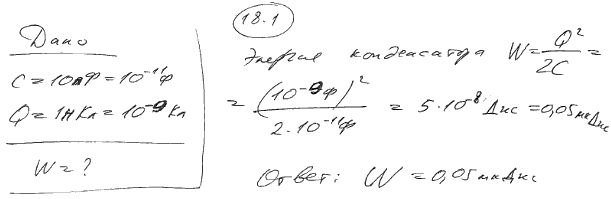 18.1
Дано
C = 10пФ = 10⁻¹¹Ф
Q = 1нКл = 10⁻⁹Кл
W = ?
Энергия конденсатора W = Q²/2C =
= (10⁻⁹Ф)²/2·10⁻¹¹Ф = 5·10⁻⁸ Дж = 0,05мкДж
Ответ: W = 0,05мкДж